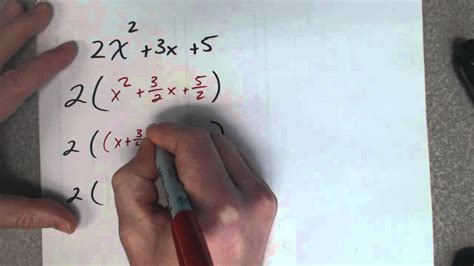 2x² + 3x + 5
2(x² + 3/2x + 5/2)
2((x + 3/
2(